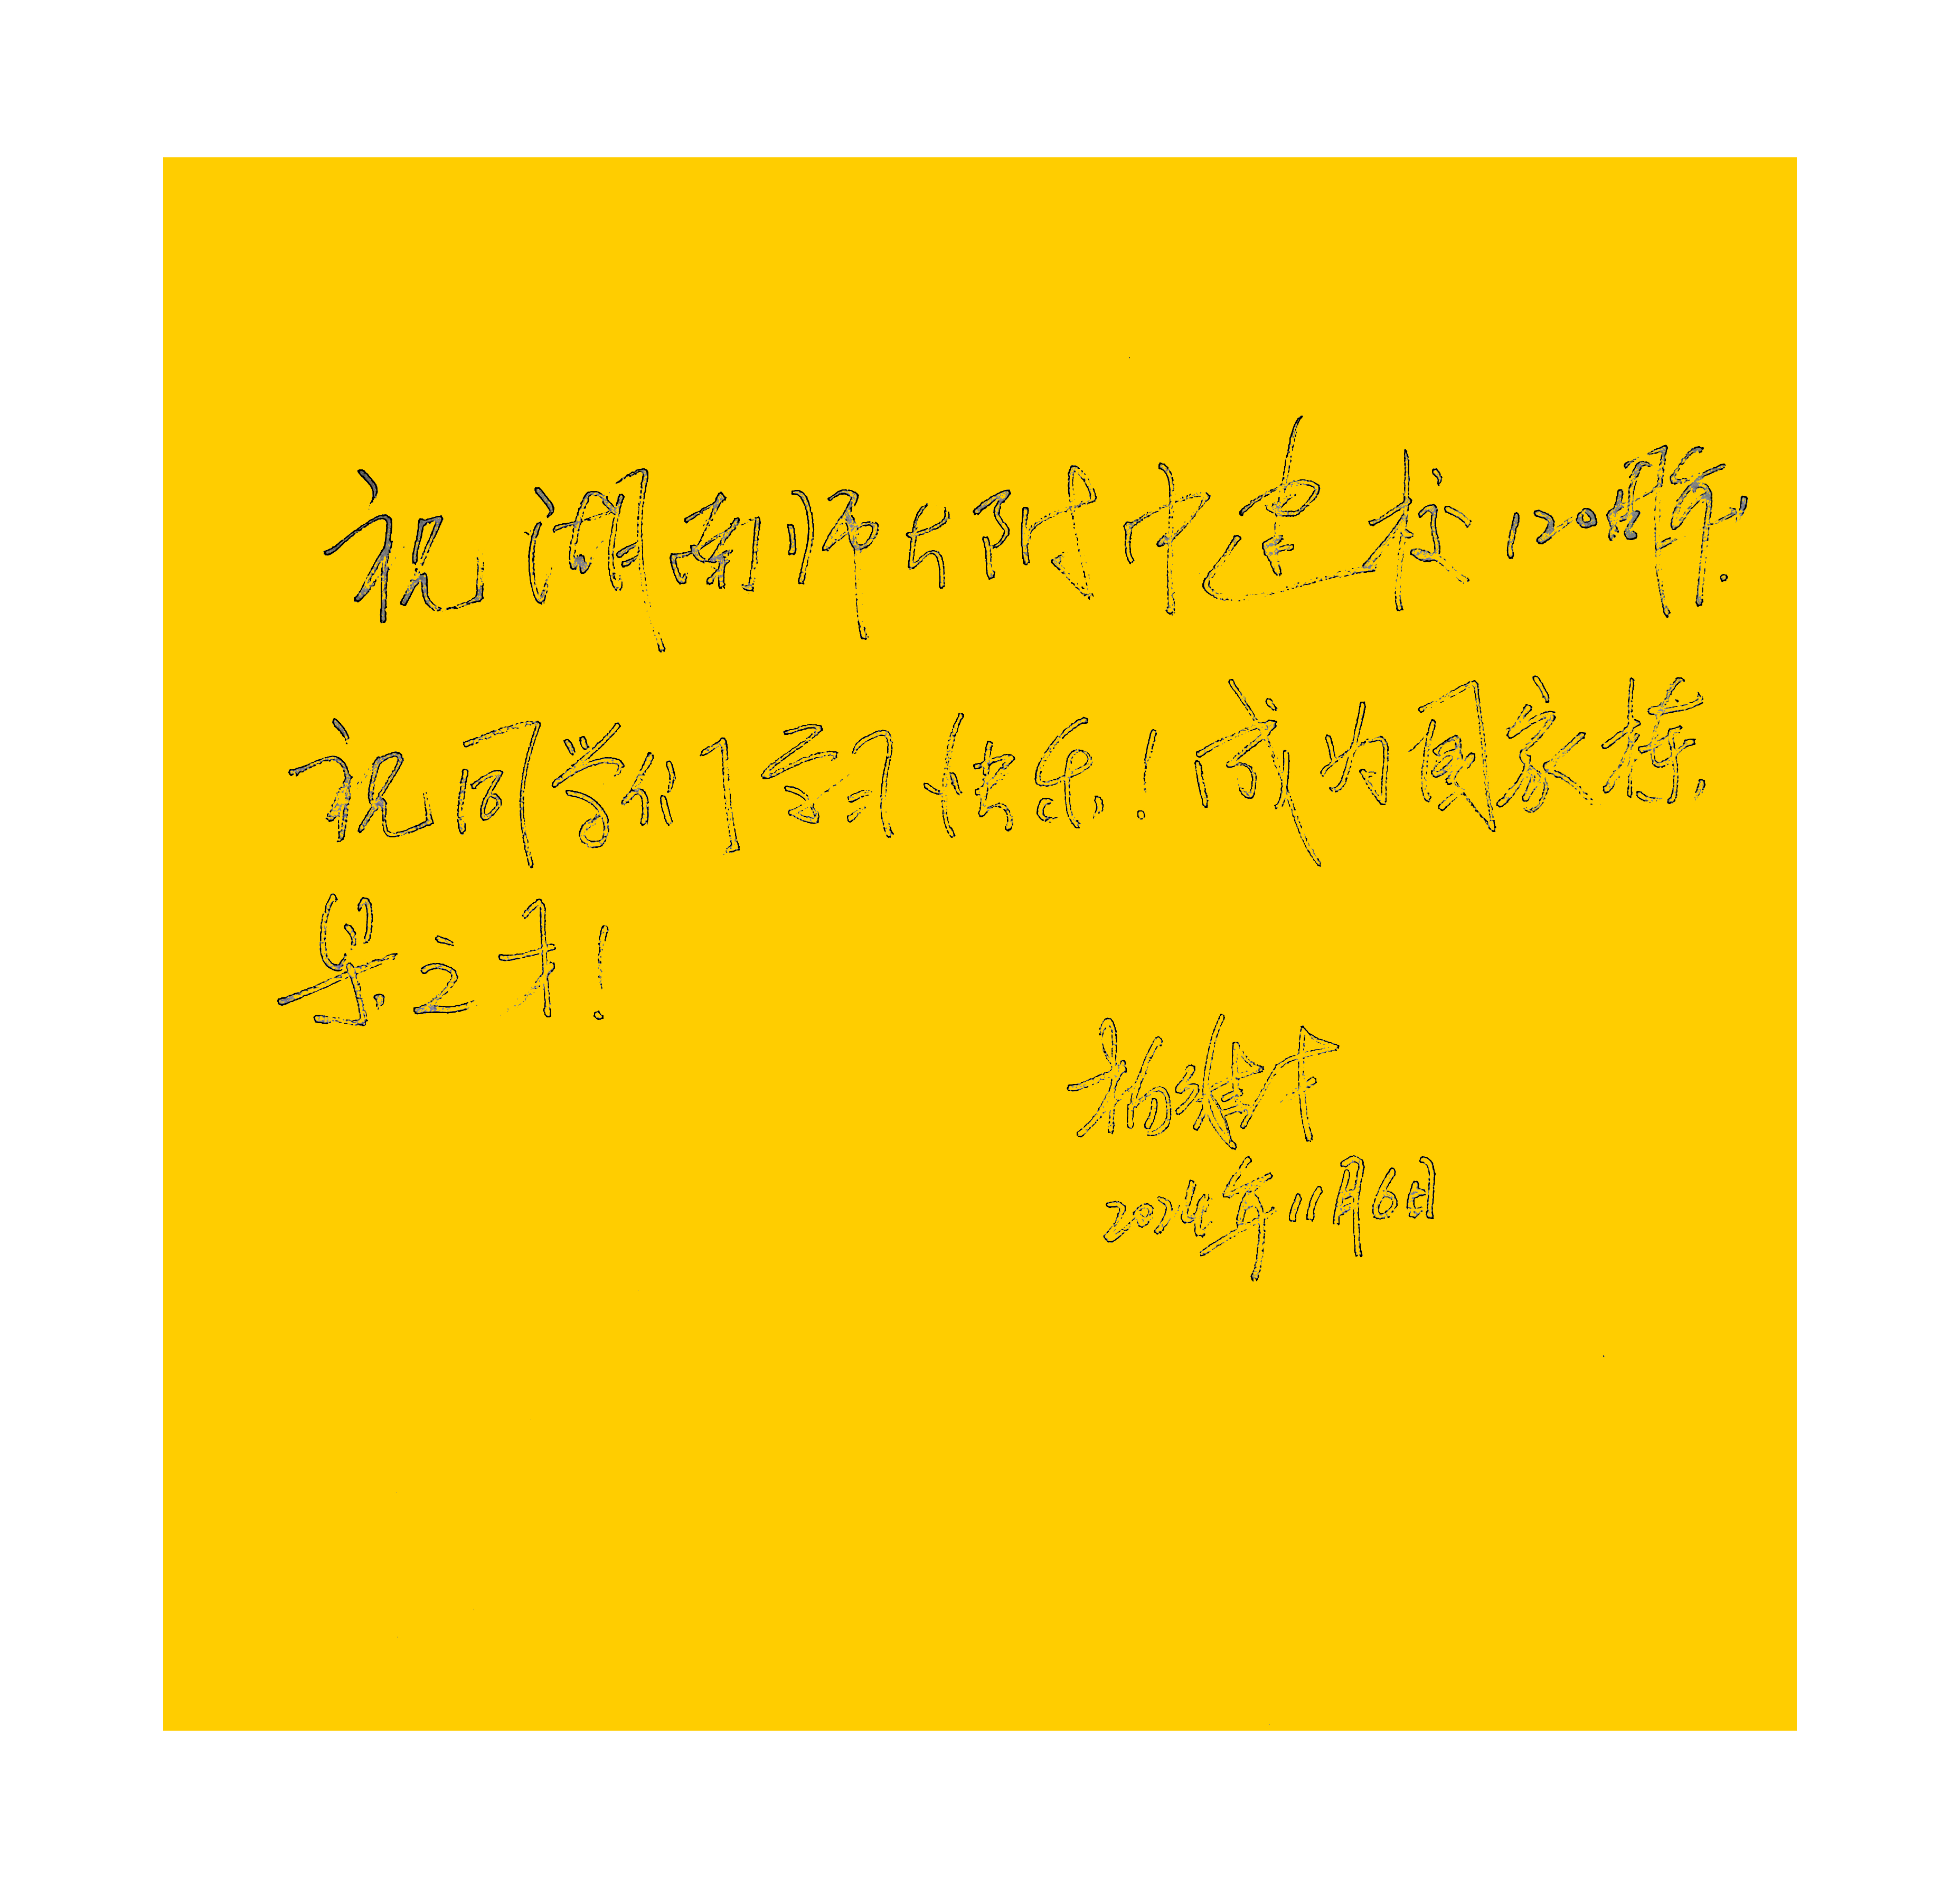 祝湖南师大附中建校120周年.
祝同学们学习快乐！成为国家栋
梁之才！
杨维
2024年11月6日